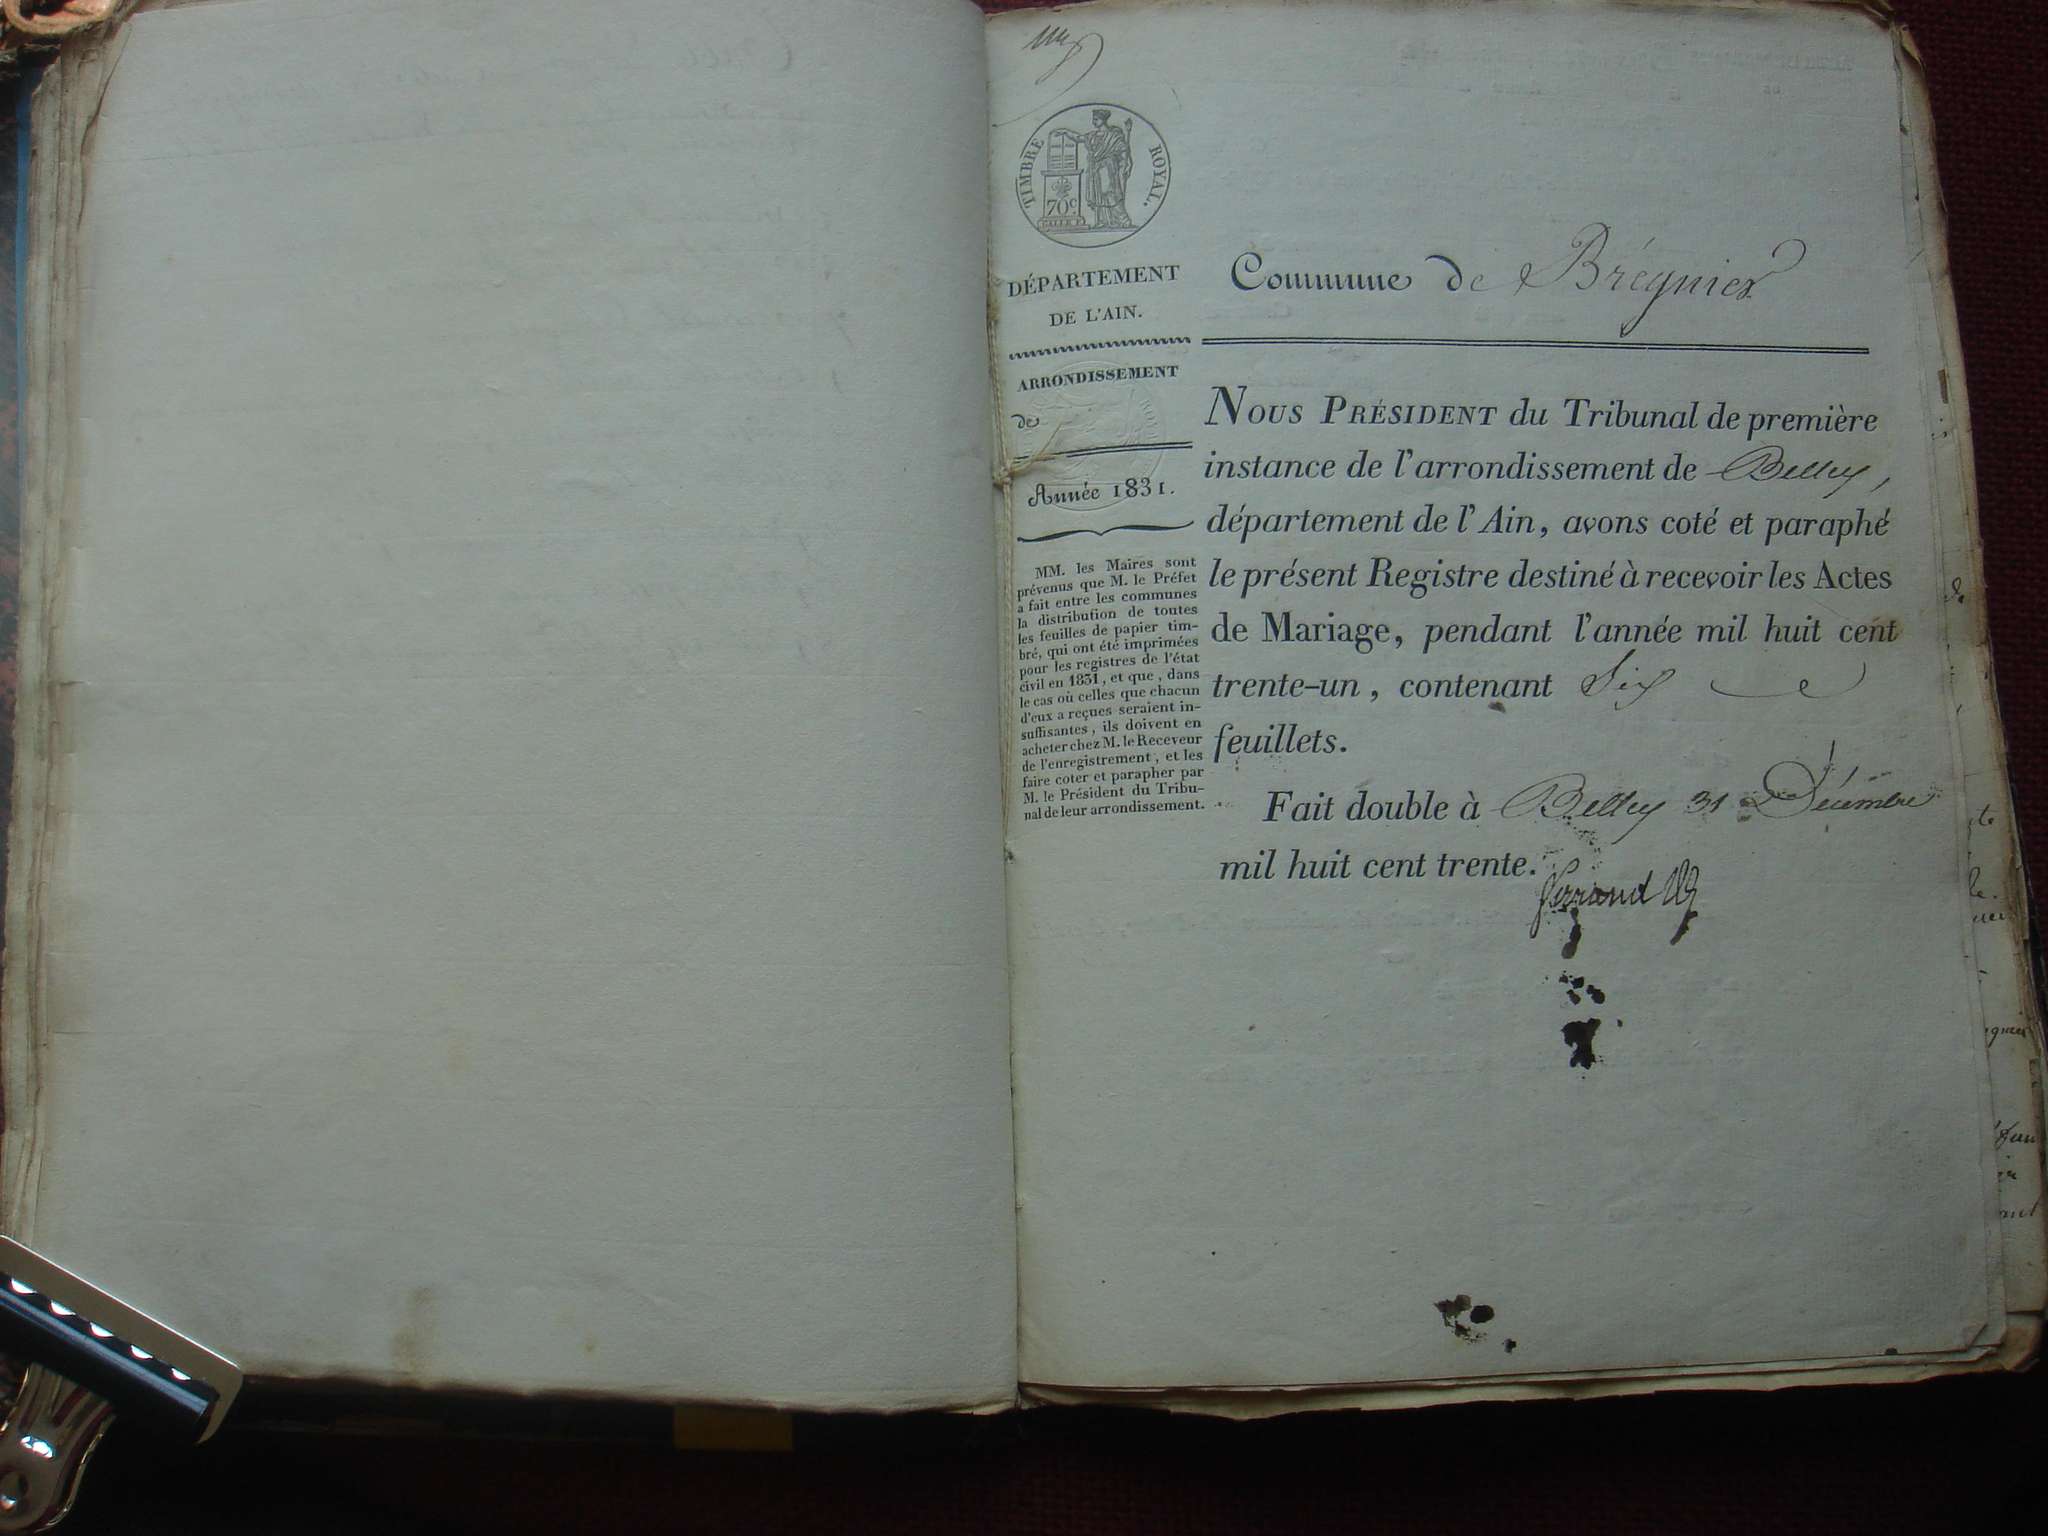 TIMBRE ROYAL.
70c
DÉPARTEMENT
DE L'AIN.
ARRONDISSEMENT
de
Année 1831.
MM. les Maires sont
prévenus que M. le Préfet
a fait entre les communes
la distribution de toutes
les feuilles de papier tim-
bré, qui ont été imprimées
pour les registres de l'état
civil en 1831, et que, dans
le cas où celles que chacun
d'eux a reçues seraient in-
suffisantes, ils doivent en
acheter chez M. le Receveur
de l'enregistrement, et les
faire coter et parapher par
M. le Président du Tribu-
nal de leur arrondissement.
Commune de Brégnier
NOUS PRÉSIDENT du Tribunal de première
instance de l'arrondissement de Belley,
département de l'Ain, avons coté et paraphé
le présent Registre destiné à recevoir les Actes
de Mariage, pendant l'année mil huit cent
trente-un, contenant Six
feuillets.
Fait double à Belley 31 Décembre
mil huit cent trente.